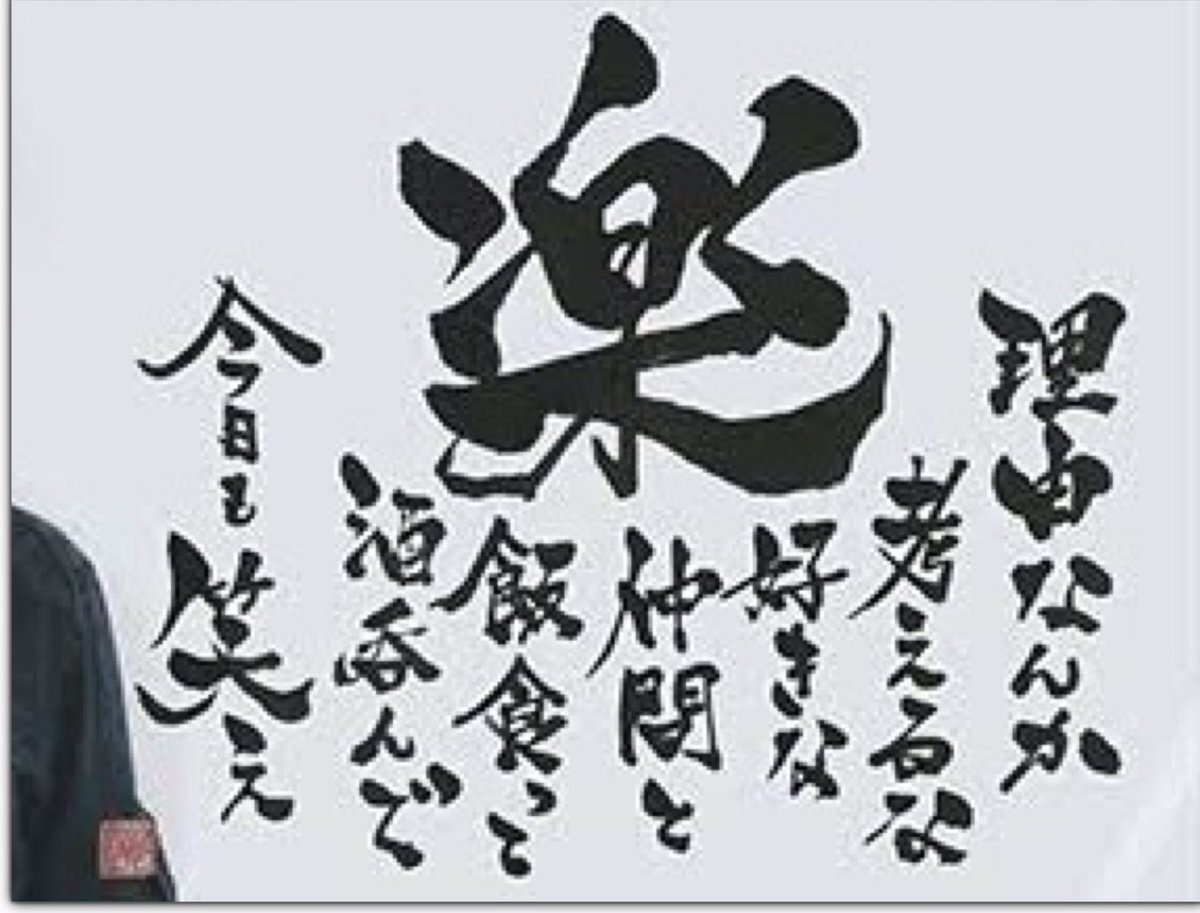 楽
理由なんか
考えるな
好きな
仲間と
飯食って
酒呑んで
今日も笑え